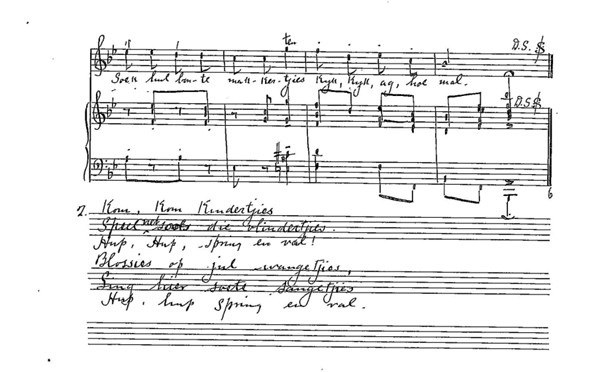 ten.
D.S. 𝄋
Soek hul bon-te mak-ker-tjies kyk, kyk, ag, hoe mal.
D.S. 𝄋
6
2. Kom, Kom Kindertjies
Speel net soos die vlindertjies.
Hup, Hup, spring en val!
Blossies op jul wangetjies,
Sing hier soete sangetjies
Hup, hup spring en val.